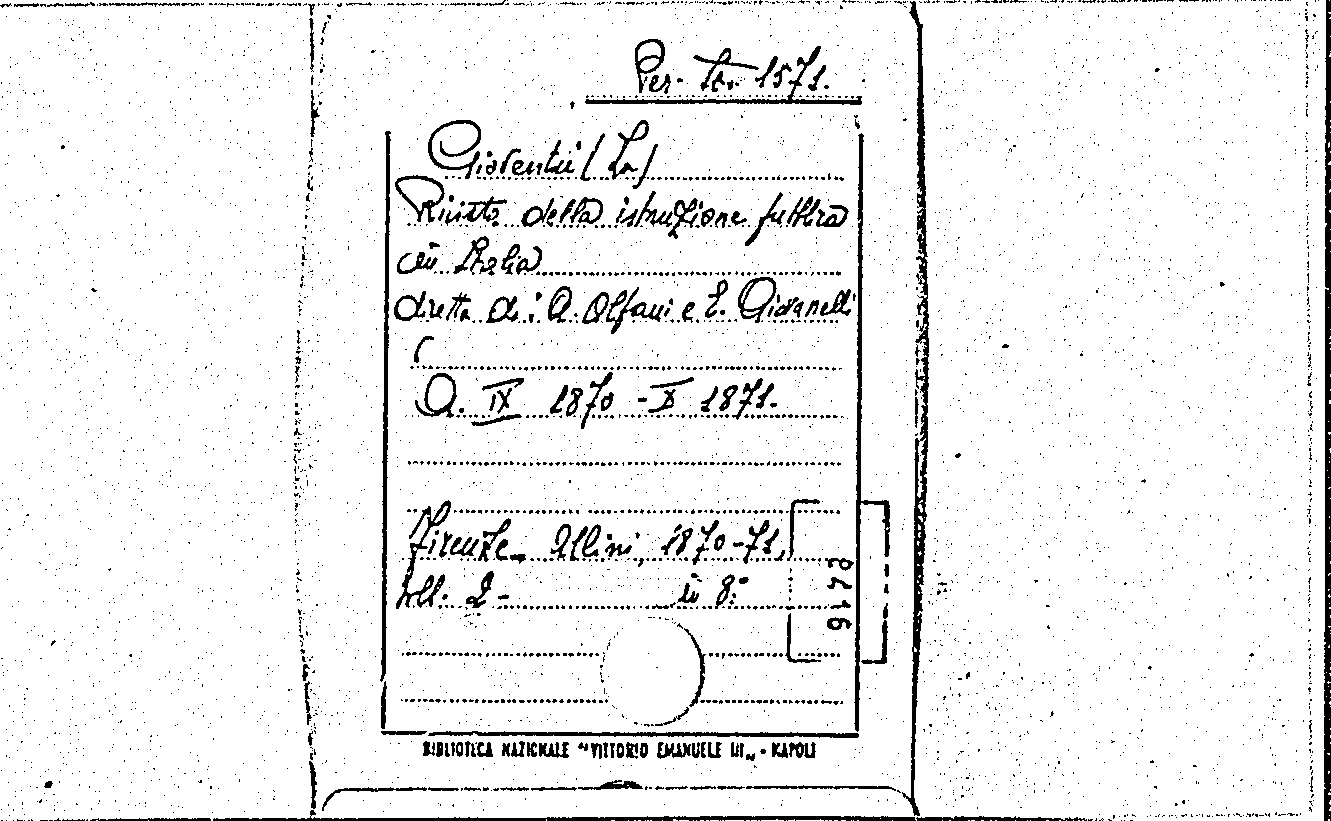 Per. It. 1571.
Gioventù (La)
Rivista della istruzione pubblica
in Italia
diretta da: A. Alfani e E. Giovanelli
A. IX 1870 - X 1871.
Firenze, Cellini, 1870-71,
voll. 2- in 8.°
BIBLIOTECA NAZIONALE "VITTORIO EMANUELE III„ - NAPOLI